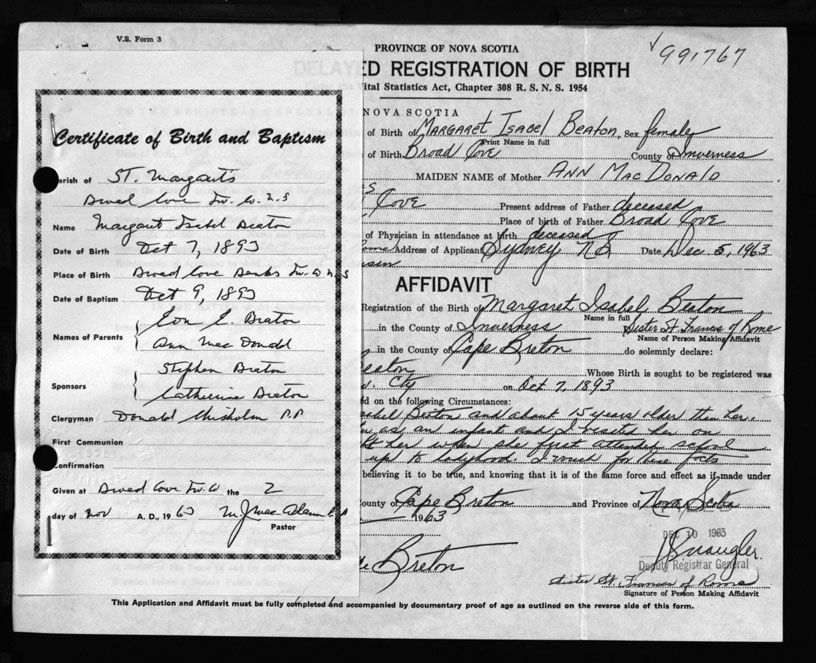 V.S. Form 3
PROVINCE OF NOVA SCOTIA
991767
DELAYED REGISTRATION OF BIRTH
Vital Statistics Act, Chapter 308 R. S. N. S. 1954
Certificate of Birth and Baptism
Parish of St. Margarets
Name Margaret Isabel Beaton
Date of Birth Oct 7, 1893
Place of Birth Broad Cove Banks Inv. Co N.S
Date of Baptism Oct 9, 1893
Names of Parents
Ann MacDonald
Sponsors Stephen Beaton
Catherine Beaton
Clergyman Donald Chisholm P.P
First Communion
Confirmation
Given at Broad Cove Inv. Co the 2
day of Nov A. D., 1963
Pastor
NOVA SCOTIA
of Birth of MARGARET ISABEL BEATON, Sex female
Print Name in full
of Birth Broad Cove County of Inverness
MAIDEN NAME of Mother ANN MACDONALD
Cove Present address of Father deceased
Place of birth of Father Broad Cove
of Physician in attendance at birth deceased
Rome Address of Applicant Sydney NS Date Dec. 5, 1963
AFFIDAVIT
Registration of the Birth of Margaret Isabel Beaton
Name in full
in the County of Inverness Sister St Francis of Rome
Name of Person Making Affidavit
in the County of Cape Breton do solemnly declare:
Beaton Whose Birth is sought to be registered was
on Oct 7, 1893
on the following Circumstances:
Isabel Beaton and about 15 years older than her.
as an infant and I visited her on
her when she first attended school
up to ladyhood. I vouch for these facts
believing it to be true, and knowing that it is of the same force and effect as if made under
County of Cape Breton and Province of Nova Scotia
1963
DEC 10 1963
Breton
Deputy Registrar General
Sister St. Francis of Rome
Signature of Person Making Affidavit
This Application and Affidavit must be fully completed and accompanied by documentary proof of age as outlined on the reverse side of this form.